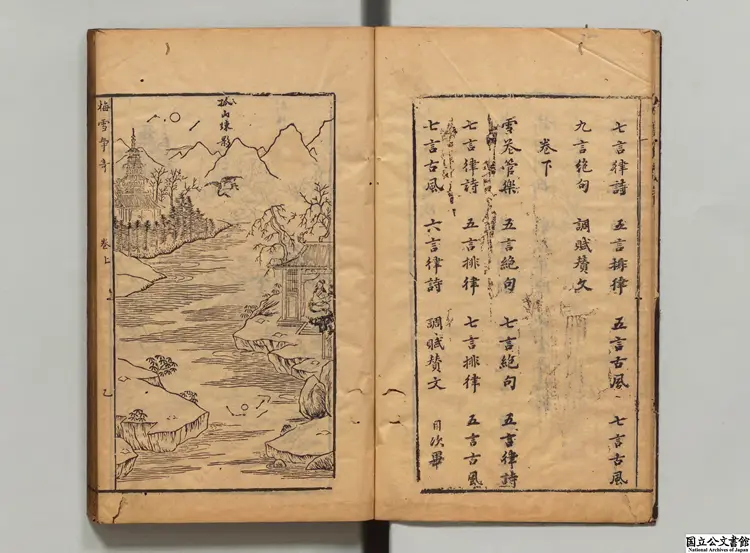 七言律詩 五言排律 五言古風 七言古風
九言絶句 調賦賛文
卷下
雪卷管樂 五言絶句 七言絶句 五言律詩
七言律詩 五言排律 七言排律 五言古風
七言古風 六言律詩 調賦賛文 目次畢
孤山練影
梅雪争奇 卷上
国立公文書館
National Archives of Japan